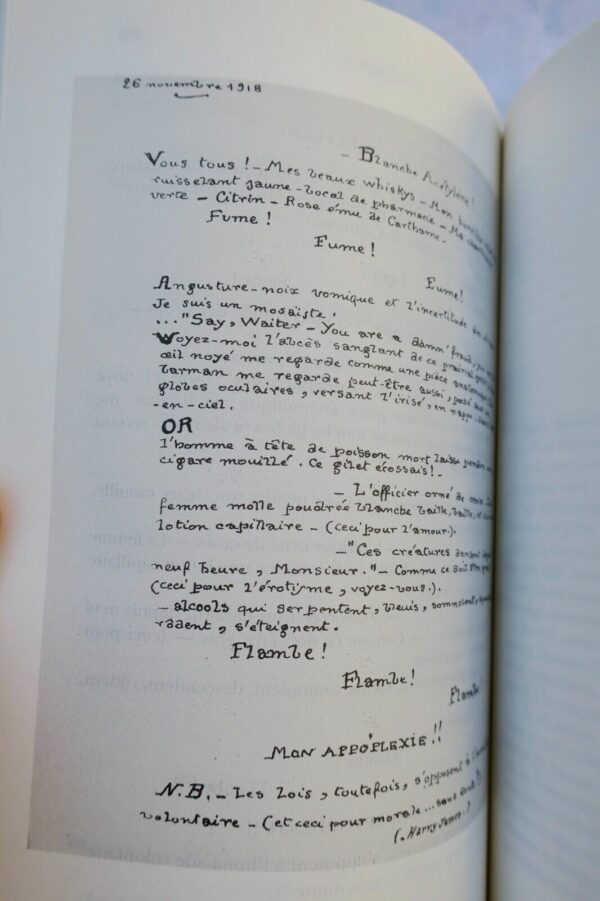 26 novembre 1918
– Blanche Acétylène !
Vous tous ! – Mes beaux whiskys – Mon
ruisselant jaune – bocal de pharmacie – Ma
verte – Citrin – Rose ému de Carthame –
Fume !
Fume !
Fume !
Angusture – noix vomique et l'incertitude
Je suis un mosaïste !
..."Say, Waiter – You are a damn' fraud,
Voyez-moi l'abcès sanglant de ce prairial
œil noyé me regarde comme une pièce
barman me regarde peut-être aussi,
globes oculaires, versant l'irisé, en nappe
-en-ciel.
OR
l'homme à tête de poisson mort laisse
cigare mouillé. Ce gilet écossais ! –
– L'officier orné de
femme molle poudrée blanche baille, baille,
lotion capillaire – (ceci pour l'amour.).
– "Ces créatures dansent
neuf heure, Monsieur." – Comme ce
(ceci pour l'érotisme, voyez-vous.).
– alcools qui serpentent, bleuis, somnolent,
rôdent, s'éteignent.
Flambe !
Flambe !
Flambe !
MON APPO'PLEXIE !!
N.B. – Les Lois, toutefois, s'opposent à
volontaire – (et ceci pour morale ...
(. Harry James .)